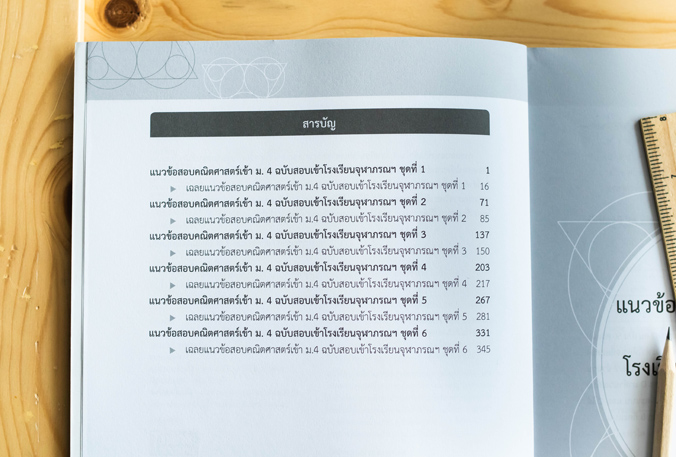 สารบัญ
แนวข้อสอบคณิตศาสตร์เข้า ม. 4 ฉบับสอบเข้าโรงเรียนจุฬาภรณฯ ชุดที่ 1 1
เฉลยแนวข้อสอบคณิตศาสตร์เข้า ม.4 ฉบับสอบเข้าโรงเรียนจุฬาภรณฯ ชุดที่ 1 16
แนวข้อสอบคณิตศาสตร์เข้า ม. 4 ฉบับสอบเข้าโรงเรียนจุฬาภรณฯ ชุดที่ 2 71
เฉลยแนวข้อสอบคณิตศาสตร์เข้า ม.4 ฉบับสอบเข้าโรงเรียนจุฬาภรณฯ ชุดที่ 2 85
แนวข้อสอบคณิตศาสตร์เข้า ม. 4 ฉบับสอบเข้าโรงเรียนจุฬาภรณฯ ชุดที่ 3 137
เฉลยแนวข้อสอบคณิตศาสตร์เข้า ม.4 ฉบับสอบเข้าโรงเรียนจุฬาภรณฯ ชุดที่ 3 150
แนวข้อสอบคณิตศาสตร์เข้า ม. 4 ฉบับสอบเข้าโรงเรียนจุฬาภรณฯ ชุดที่ 4 203
เฉลยแนวข้อสอบคณิตศาสตร์เข้า ม.4 ฉบับสอบเข้าโรงเรียนจุฬาภรณฯ ชุดที่ 4 217
แนวข้อสอบคณิตศาสตร์เข้า ม. 4 ฉบับสอบเข้าโรงเรียนจุฬาภรณฯ ชุดที่ 5 267
เฉลยแนวข้อสอบคณิตศาสตร์เข้า ม.4 ฉบับสอบเข้าโรงเรียนจุฬาภรณฯ ชุดที่ 5 281
แนวข้อสอบคณิตศาสตร์เข้า ม. 4 ฉบับสอบเข้าโรงเรียนจุฬาภรณฯ ชุดที่ 6 331
เฉลยแนวข้อสอบคณิตศาสตร์เข้า ม.4 ฉบับสอบเข้าโรงเรียนจุฬาภรณฯ ชุดที่ 6 345
8
7
แนวข้อ